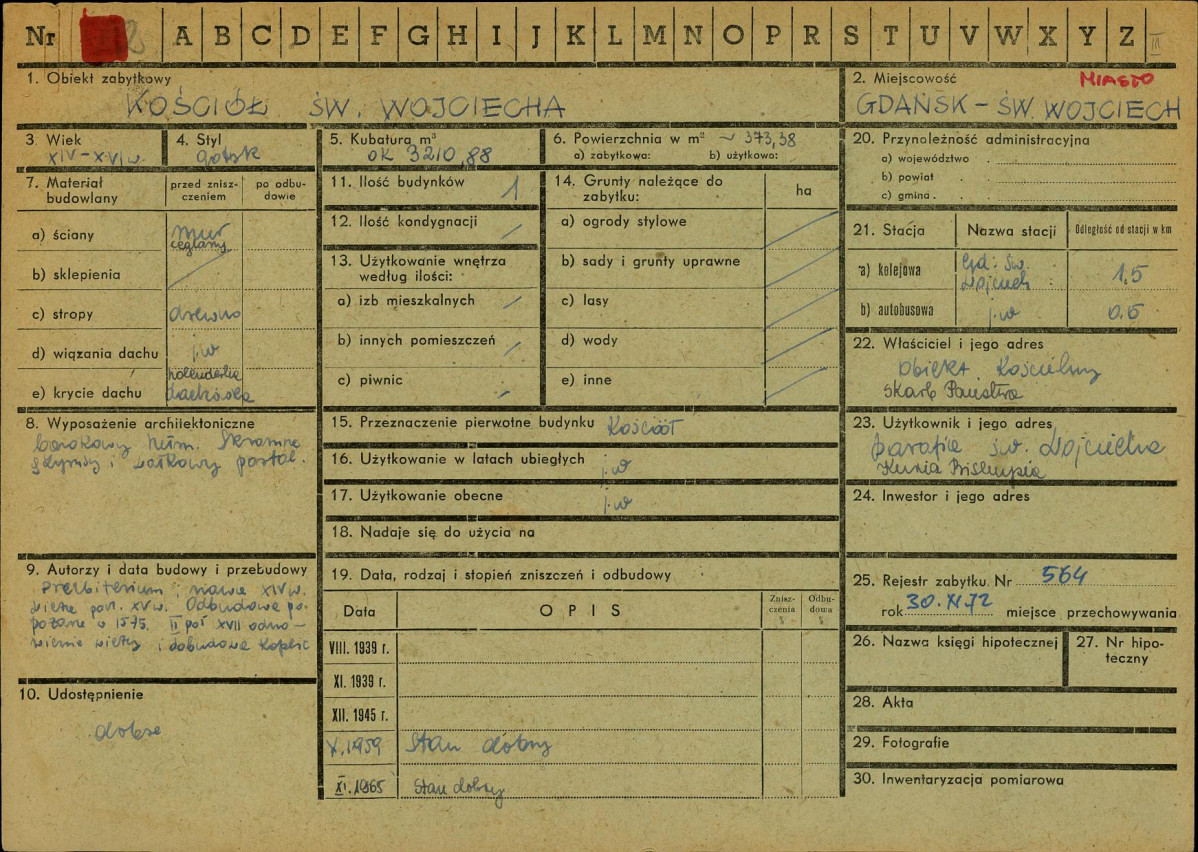 Nr A B C D E F G H I J K L M N O P R S T U V W X Y Z III
1. Obiekt zabytkowy
KOŚCIÓŁ ŚW. WOJCIECHA
2. Miejscowość MIASTO
GDAŃSK - ŚW. WOJCIECH
3. Wiek
XIV-XVI w.
4. Styl
gotyk
5. Kubatura m³
ok 3210,88
6. Powierzchnia w m² ~ 373,38
a) zabytkowa: b) użytkowa:
7. Materiał budowlany
przed znisz-
czeniem
po odbu-
dowie
a) ściany mur
ceglany
b) sklepienia
c) stropy drewno
d) wiązania dachu j.w
e) krycie dachu holenderka
dachówka
8. Wyposażenie architektoniczne
barokowy hełm. Skromne
szczyty i portal.
9. Autorzy i data budowy i przebudowy
Prezbiterium i nawa XIV w.
wieża poł. XV w. Odbudowa po
pożarze o 1575. II poł XVII odno-
wienie wieży i dobudowa kaplic
10. Udostępnienie
dobre
11. Ilość budynków 1
12. Ilość kondygnacji
13. Użytkowanie wnętrza
według ilości:
a) izb mieszkalnych
b) innych pomieszczeń
c) piwnic
14. Grunty należące do
zabytku:
ha
a) ogrody stylowe
b) sady i grunty uprawne
c) lasy
d) wody
e) inne
15. Przeznaczenie pierwotne budynku Kościół
16. Użytkowanie w latach ubiegłych j.w
17. Użytkowanie obecne j.w
18. Nadaje się do użycia na
19. Data, rodzaj i stopień zniszczeń i odbudowy
Data OPIS
Znisz-
czenia
%
Odbu-
dowa
%
VIII. 1939 r.
XI. 1939 r.
XII. 1945 r.
X.1959 Stan dobry
XI.1965 Stan dobry
20. Przynależność administracyjna
a) województwo
b) powiat
c) gmina
21. Stacja Nazwa stacji Odległość od stacji w km
a) kolejowa Gd. Św.
Wojciech 1,5
b) autobusowa j.w 0.5
22. Właściciel i jego adres
Obiekt Kościelny
Skarb Państwa
23. Użytkownik i jego adres
parafia św. Wojciecha
Kuria Biskupia
24. Inwestor i jego adres
25. Rejestr zabytku. Nr 564
rok 30.XI.72 miejsce przechowywania
26. Nazwa księgi hipotecznej
27. Nr hipo-
teczny
28. Akta
29. Fotografie
30. Inwentaryzacja pomiarowa